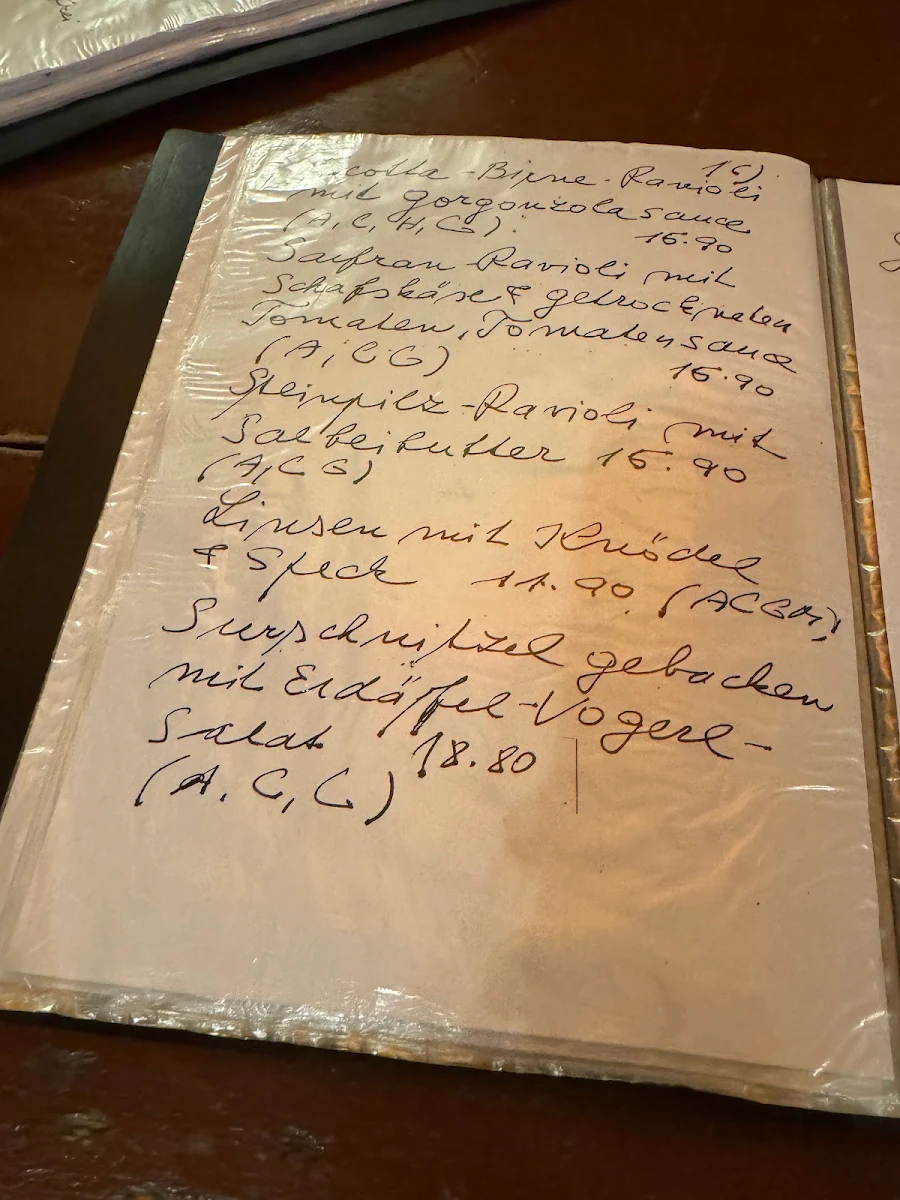 16)
-Birne-Ravioli
mit gorgonzolasauce
(A, C, H, G). 16.90
Safran-Ravioli mit
Schafskäse & getrockneten
Tomaten, Tomatensauce
(A, C G) 16.90
Steinpilz-Ravioli mit
Salbeibutter 16.90
(A, C G)
Linsen mit Knödel
& Speck 11.90 (ACGM)
Surschnitzel gebacken
mit Erdäpfel-Vogerl-
Salat 18.80
(A. C, G)